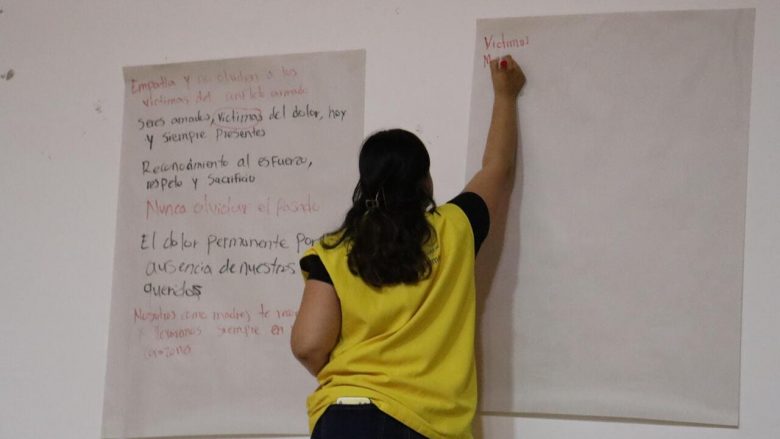 Empatia y no olvidar a las
victimas del conflicto armado
seres amados, victimas del dolor, hoy
y siempre presentes
Reconocimiento al esfuerzo,
respeto y sacrificio
Nunca olvidar el pasado
El dolor permanente por
ausencia de nuestros
queridos
Nosotras como madres te
llevamos siempre en
corazona
Victimas
M